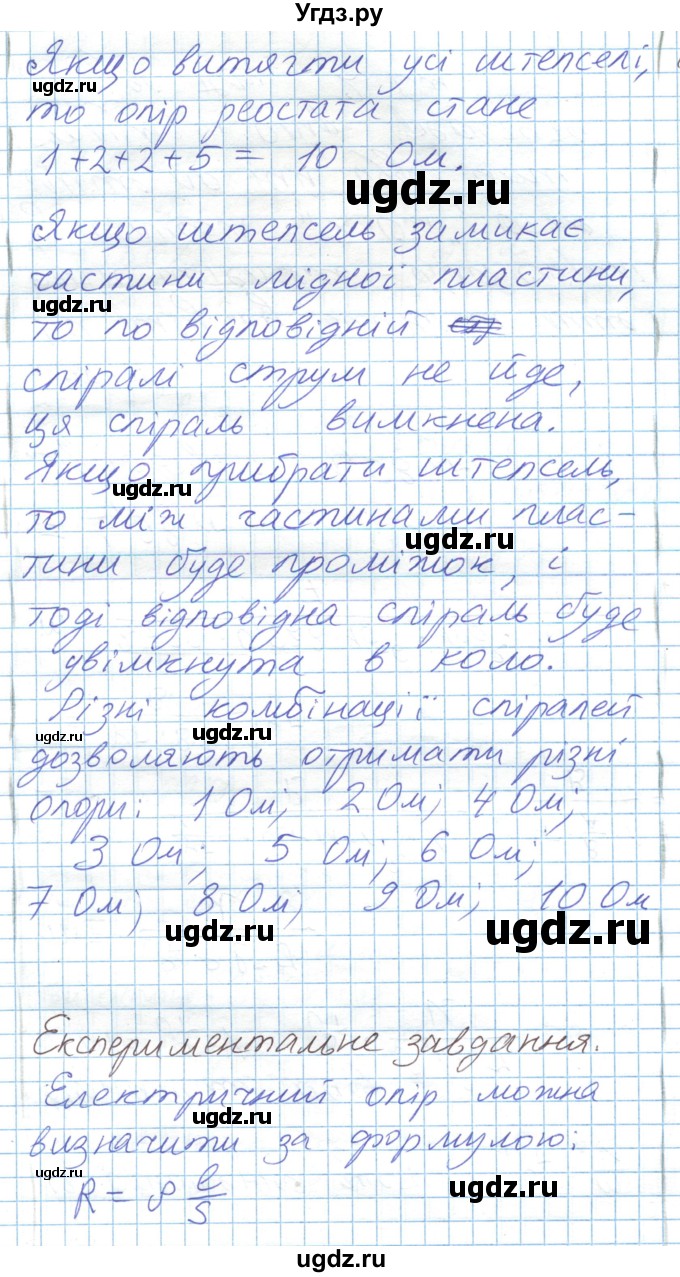 Угдз.ру
Якщо витягти усі штепселі,
то опір реостата стане
1+2+2+5 = 10 Ом.
ugdz.ru
ugdz.ru
Якщо штепсель замикає
частини мідної пластини,
ugdz.ru
то по відповідній
спіралі струм не йде,
ця спіраль вимкнена.
Якщо прибрати штепсель,
ugdz.ru
то між частинами плас-
ugdz.ru
тини буде проміжок, і
тоді відповідна спіраль буде
увімкнута в коло.
Різні комбінації спіралей
ugdz.ru
ugdz.ru
дозволяють отримати різні
опори: 1 Ом; 2 Ом; 4 Ом;
3 Ом; 5 Ом; 6 Ом;
7 Ом; 8 Ом; 9 Ом; 10 Ом
ugdz.ru
ugdz.ru
Експериментальне завдання.
Електричний опір можна
ugdz.ru
визначити за формулою:
ugdz.ru
R = ρ l/S
ugdz.ru
ugdz.ru